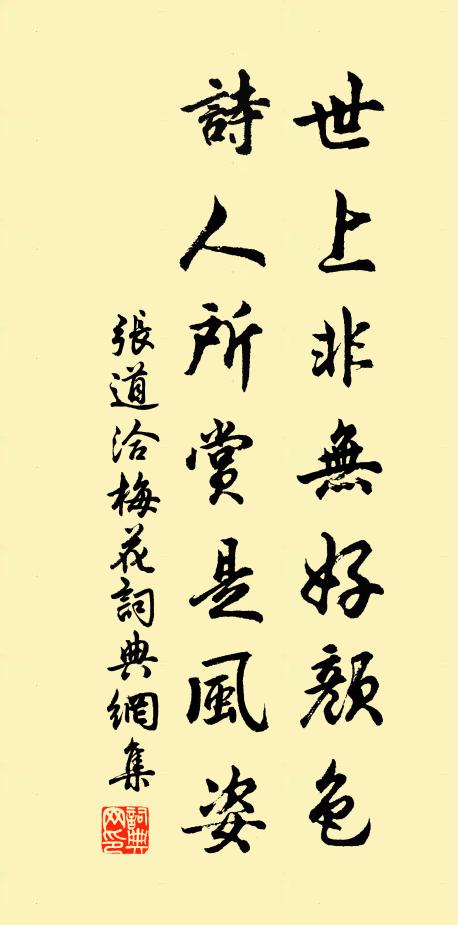 世上非無好顏色
詩人所賞是風姿
張道洽梅花詞典網集
詞典网印